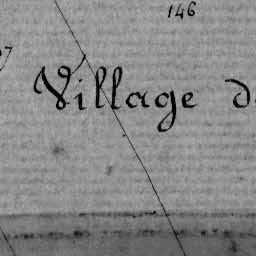 146
Village